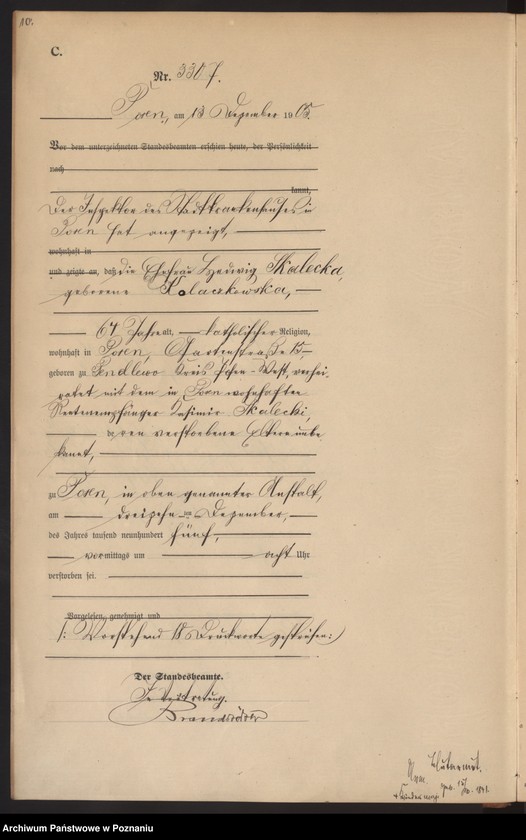 C.
Nr. 3307.
Posen, am 13. Dezember 1905.
Vor dem unterzeichneten Standesbeamten erschien heute, der Persönlichkeit
nach
kannt,
Der Inspektor des Stadtkrankenhauses in
Posen hat angezeigt,
wohnhaft in
und zeigte an, daß die Ehefrau Hedwig Skalecka,
geborene Kolaczkowska,
64 Jahre alt, katholischer Religion,
wohnhaft in Posen, Gartenstraße 15,
geboren zu Kreis Posen-West, verhei-
ratet mit dem in Posen wohnhaften
Rentenempfänger Kasimir Skalecki,
deren verstorbene Eltern unbe
kannt,
zu Posen, in oben genannter Anstalt,
am dreizehn ten Dezember,
des Jahres tausend neunhundert fünf,
vormittags um acht Uhr
verstorben sei.
Vorgelesen, genehmigt und
/: Vorstehend 18 Druckworte gestrichen :/
Der Standesbeamte.
In Vertretung.
Blutarmut.
Archiwum Państwowe w Poznaniu